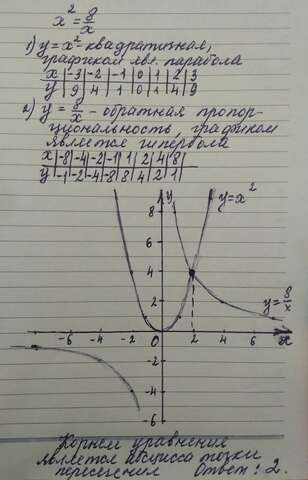 x² = 8/x
1) y = x² - квадратичная,
графиком явл. парабола
x | -3 | -2 | -1 | 0 | 1 | 2 | 3
y | 9 | 4 | 1 | 0 | 1 | 4 | 9
2) y = 8/x - обратная пропор-
циональность, графиком
является гипербола
x | -8 | -4 | -2 | -1 | 1 | 2 | 4 | 8
y | -1 | -2 | -4 | -8 | 8 | 4 | 2 | 1
y
y = x²
8
6
4
2
y = 8/x
-6 -4 -2 0 2 4 6 x
-2
-4
-6
Корнем уравнения
является абсцисса точки
пересечения Ответ: 2.